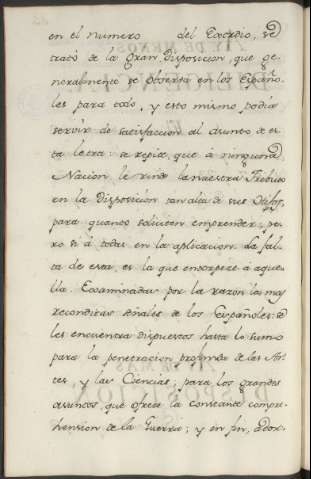 en el numero del Exordio, se
trató de la gran Disposicion, que ge-
neralmente se observa en los Españo-
les para todo, y esto mismo podia
servir de satisfaccion al asunto de es-
ta letra: se repite, que à ninguna
Nacion le rinde la nuestra Tributo
en la Disposicion tan alta de sus
para quanto soliciten emprender; pe-
ro si à todas en la aplicacion. La fal-
ta de esta, es la que entorpece à aque-
lla. Examinadas por la razon las mas
reconditas señales de los Españoles: se
les encuentra dispuestos hasta lo sumo
para la penetracion profunda de las Ar-
tes y las Ciencias; para los grandes
asuntos, que ofrece la constante compre-
hension de la Guerra; y en fin,